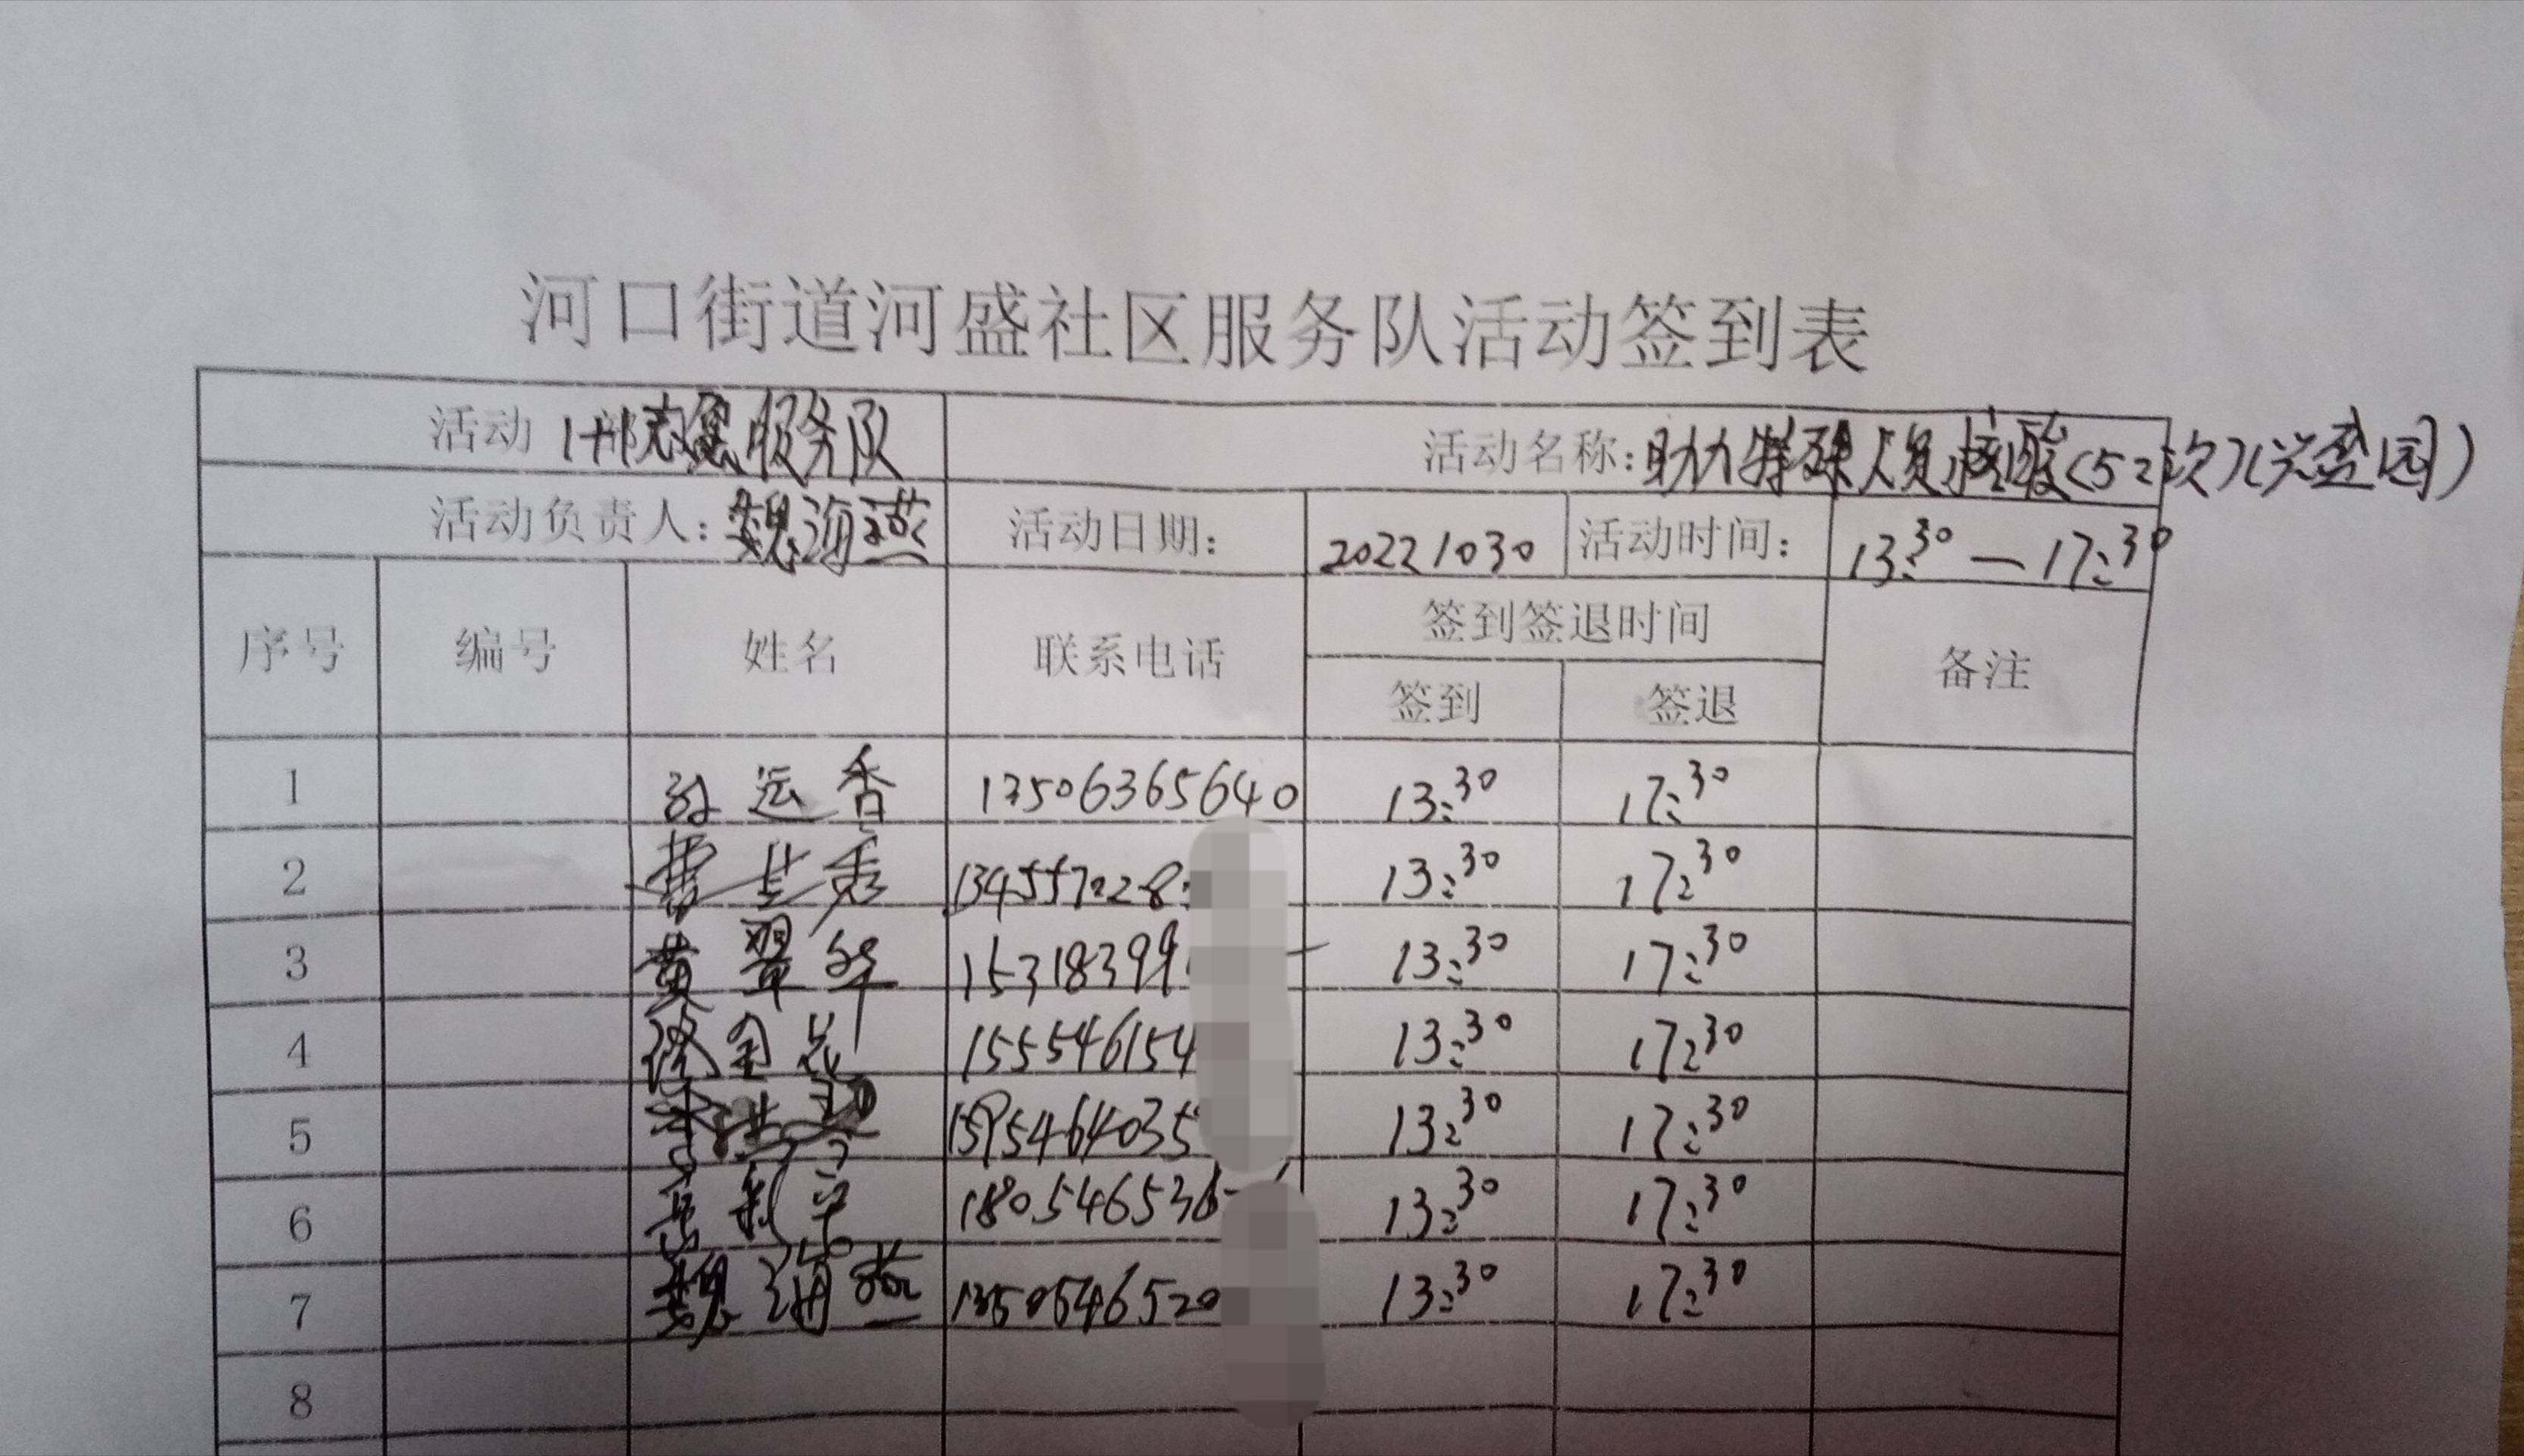 河口街道河盛社区服务队活动签到表
活动 志愿服务队 活动名称:助力特殊人员核酸(52次)(兴盛园)
活动负责人:魏海燕 活动日期: 20221030 活动时间: 13:30—17:30
序号 编号 姓名 联系电话 签到签退时间 备注
签到 签退
1 运香 17506365640 13:30 17:30
2 秀 134557228 13:30 17:30
3 黄翠华 15318399 13:30 17:30
4 徐金 155546154 13:30 17:30
5 1595464035 13:30 17:30
6 180546536 13:30 17:30
7 魏海燕 1350546520 13:30 17:30
8